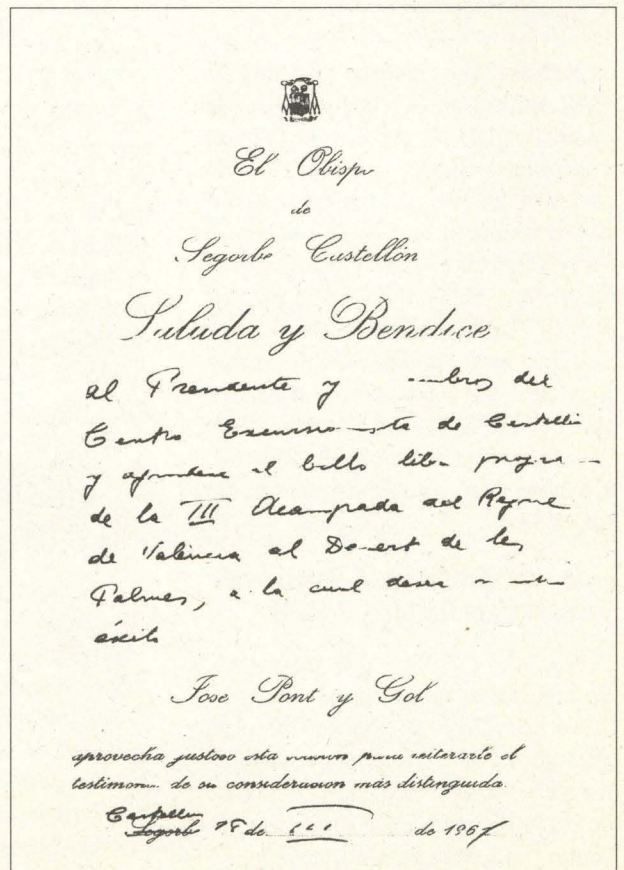 El Obispo
de
Segorbe Castellón
Saluda y Bendice
al Presidente y del
Centro Excursionista de Castelló
y agradece el bello libro
de la III Acampada del Regne
de València al Desert de les
Palmes, a la cual desea
éxito
Jose Pont y Gol
aprovecha gustoso esta para reiterarle el
testimonio de su consideracion más distinguida.
Castellón
Segorbe de III de 1967